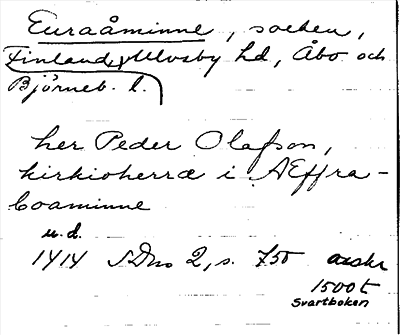 Euraåminne, socken,
Finland, Ulvsby hd, Åbo och
Björneb. l.
her Peder Olafson,
kirkioherræ i Æffra-
boaminne
u.d.
1414 SDns 2, s. 750 avskr
1500t
Svartboken